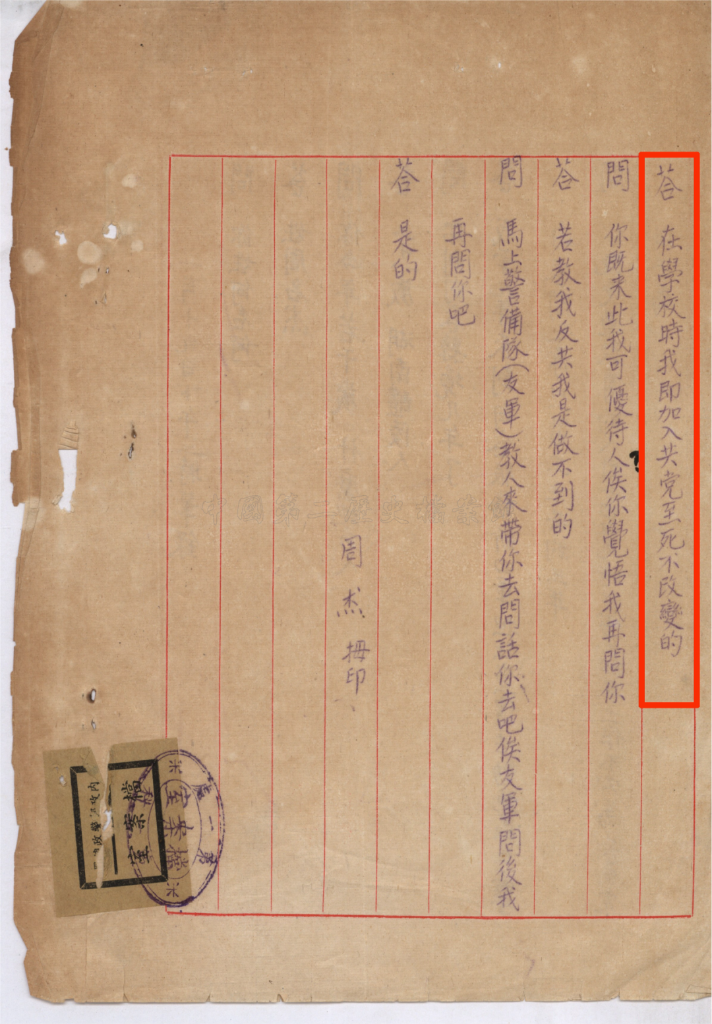 答 在學校時我即加入共党至死不改變的
問 你既来此我可優待人俟你覺悟我再問你
答 若教我反共我是做不到的
問 馬上警備隊(友軍)教人來帶你去問話你去吧俟友軍問後我
再問你吧
答 是的
周杰 拇印
檔案室
第一
檔案室